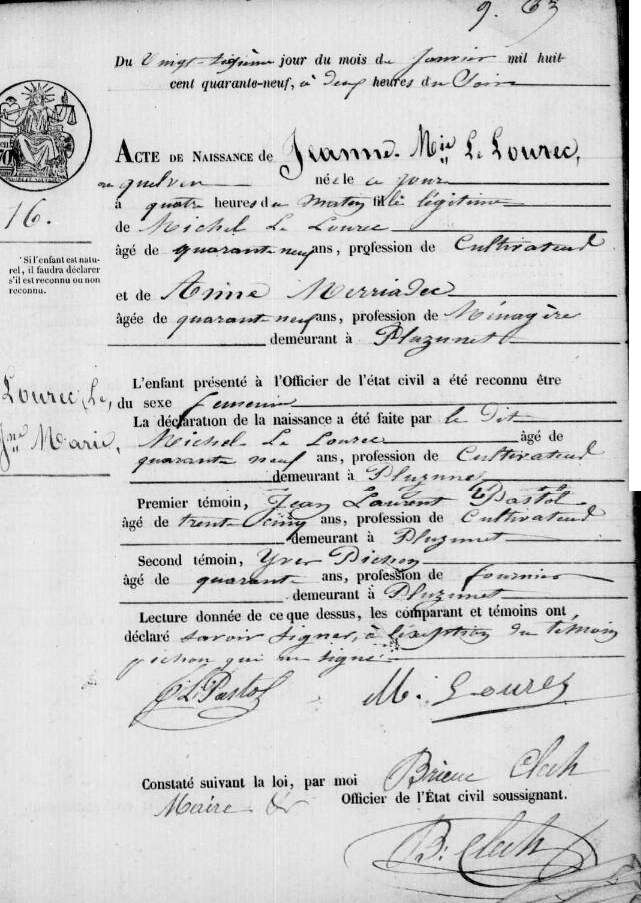 9. 63
Du Vingt-sixième jour du mois de Janvier mil huit
cent quarante-neuf, à deux heures du Soir
ACTE DE NAISSANCE de Jeanne-Mie Le Lourec,
née le ce jour
à quatre heures du matin fille légitime
16.
de Michel Le Lourec
âgé de quarante neuf ans, profession de Cultivateur
'Si l'enfant est natu-
rel, il faudra déclarer
s'il est reconnu ou non
reconnu.
et de Anne Merriadec
âgée de quarante neuf ans, profession de Ménagère
demeurant à Pluzunet
L'enfant présenté à l'Officier de l'état civil a été reconnu être
Lourec Le,
du sexe femenin
La déclaration de la naissance a été faite par le Dit
Jne Marie,
Michel Le Lourec âgé de
quarante neuf ans, profession de Cultivateur
demeurant à Pluzunet
Premier témoin, Jean Laurent Pastol
âgé de trente cinq ans, profession de Cultivateur
demeurant à Pluzunet
Second témoin, Yves Pichon
âgé de quarante ans, profession de fournier
demeurant à Pluzunet
Lecture donnée de ce que dessus, les comparant et témoins ont
déclaré savoir signer, à l'exception du témoin
pichon qui ne signe
J L Pastol
M. Lourec
Constaté suivant la loi, par moi Brieuc Clech
Maire &
Officier de l'État civil soussignant.
B. Clech